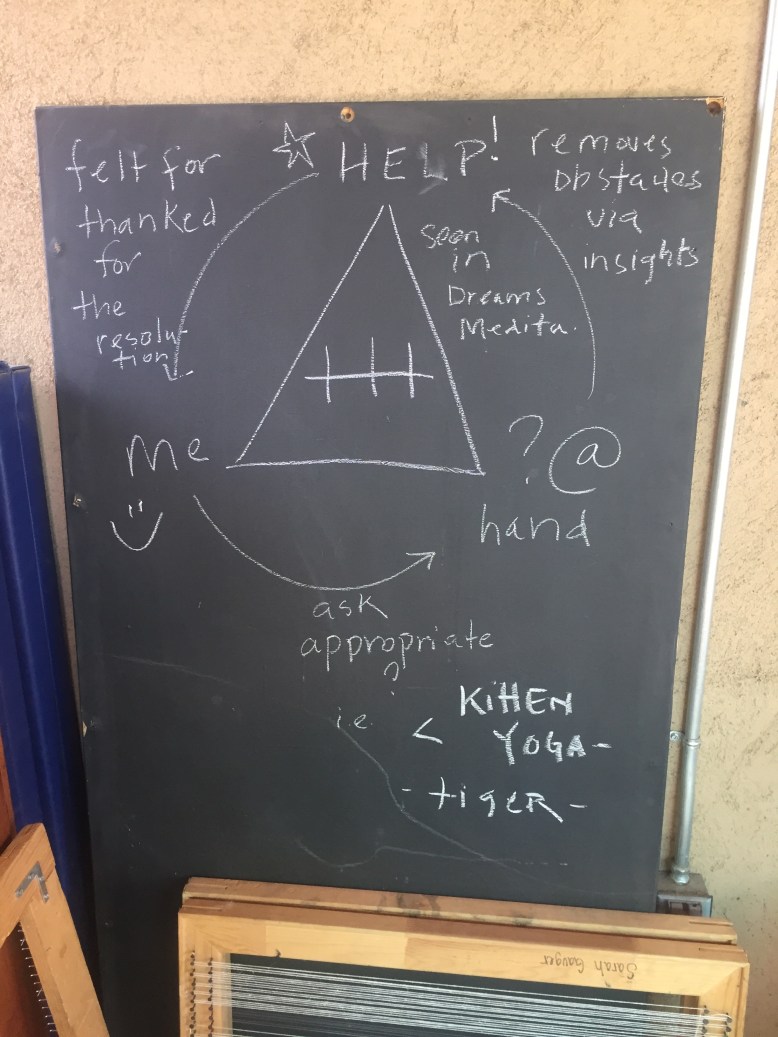 felt for
thanked
for
the
resolu-
tion
☆ HELP!
removes
obstacles
via
insights
seen
in
Dreams
Medita.
me
? @
hand
ask
appropriate
?
i.e. < KittEN
YOGA-
- tigER -
Sarah Gauger